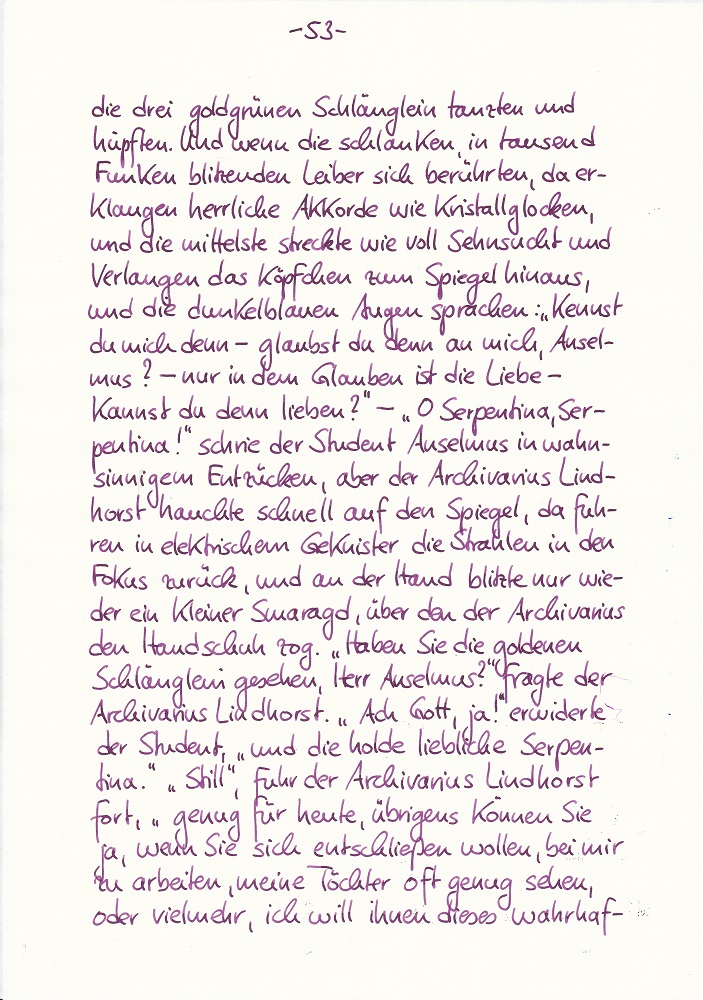 -53-
die drei goldgrünen Schlänglein tanzten und
hüpften. Und wenn die schlanken, in tausend
Funken blitzenden Leiber sich berührten, da er-
klangen herrliche Akkorde wie Kristallglocken,
und die mittelste streckte wie voll Sehnsucht und
Verlangen das Köpfchen zum Spiegel hinaus,
und die dunkelblauen Augen sprachen: „Kennst
du mich denn – glaubst du denn an mich, Ansel-
mus? – nur in dem Glauben ist die Liebe –
kannst du denn lieben?“ – „O Serpentina, Ser-
pentina!“ schrie der Student Anselmus in wahn-
sinnigem Entzücken, aber der Archivarius Lind-
horst hauchte schnell auf den Spiegel, da fuh-
ren in elektrischem Geknister die Strahlen in den
Fokus zurück, und an der Hand blitzte nur wie-
der ein kleiner Smaragd, über den der Archivarius
den Handschuh zog. „Haben Sie die goldenen
Schlänglein gesehen, Herr Anselmus?“ fragte der
Archivarius Lindhorst. „Ach Gott, ja!“ erwiderte
der Student, „und die holde liebliche Serpen-
tina.“ „Still“, fuhr der Archivarius Lindhorst
fort, „genug für heute, übrigens können Sie
ja, wenn Sie sich entschließen wollen, bei mir
zu arbeiten, meine Töchter oft genug sehen,
oder vielmehr, ich will ihnen dieses wahrhaf-